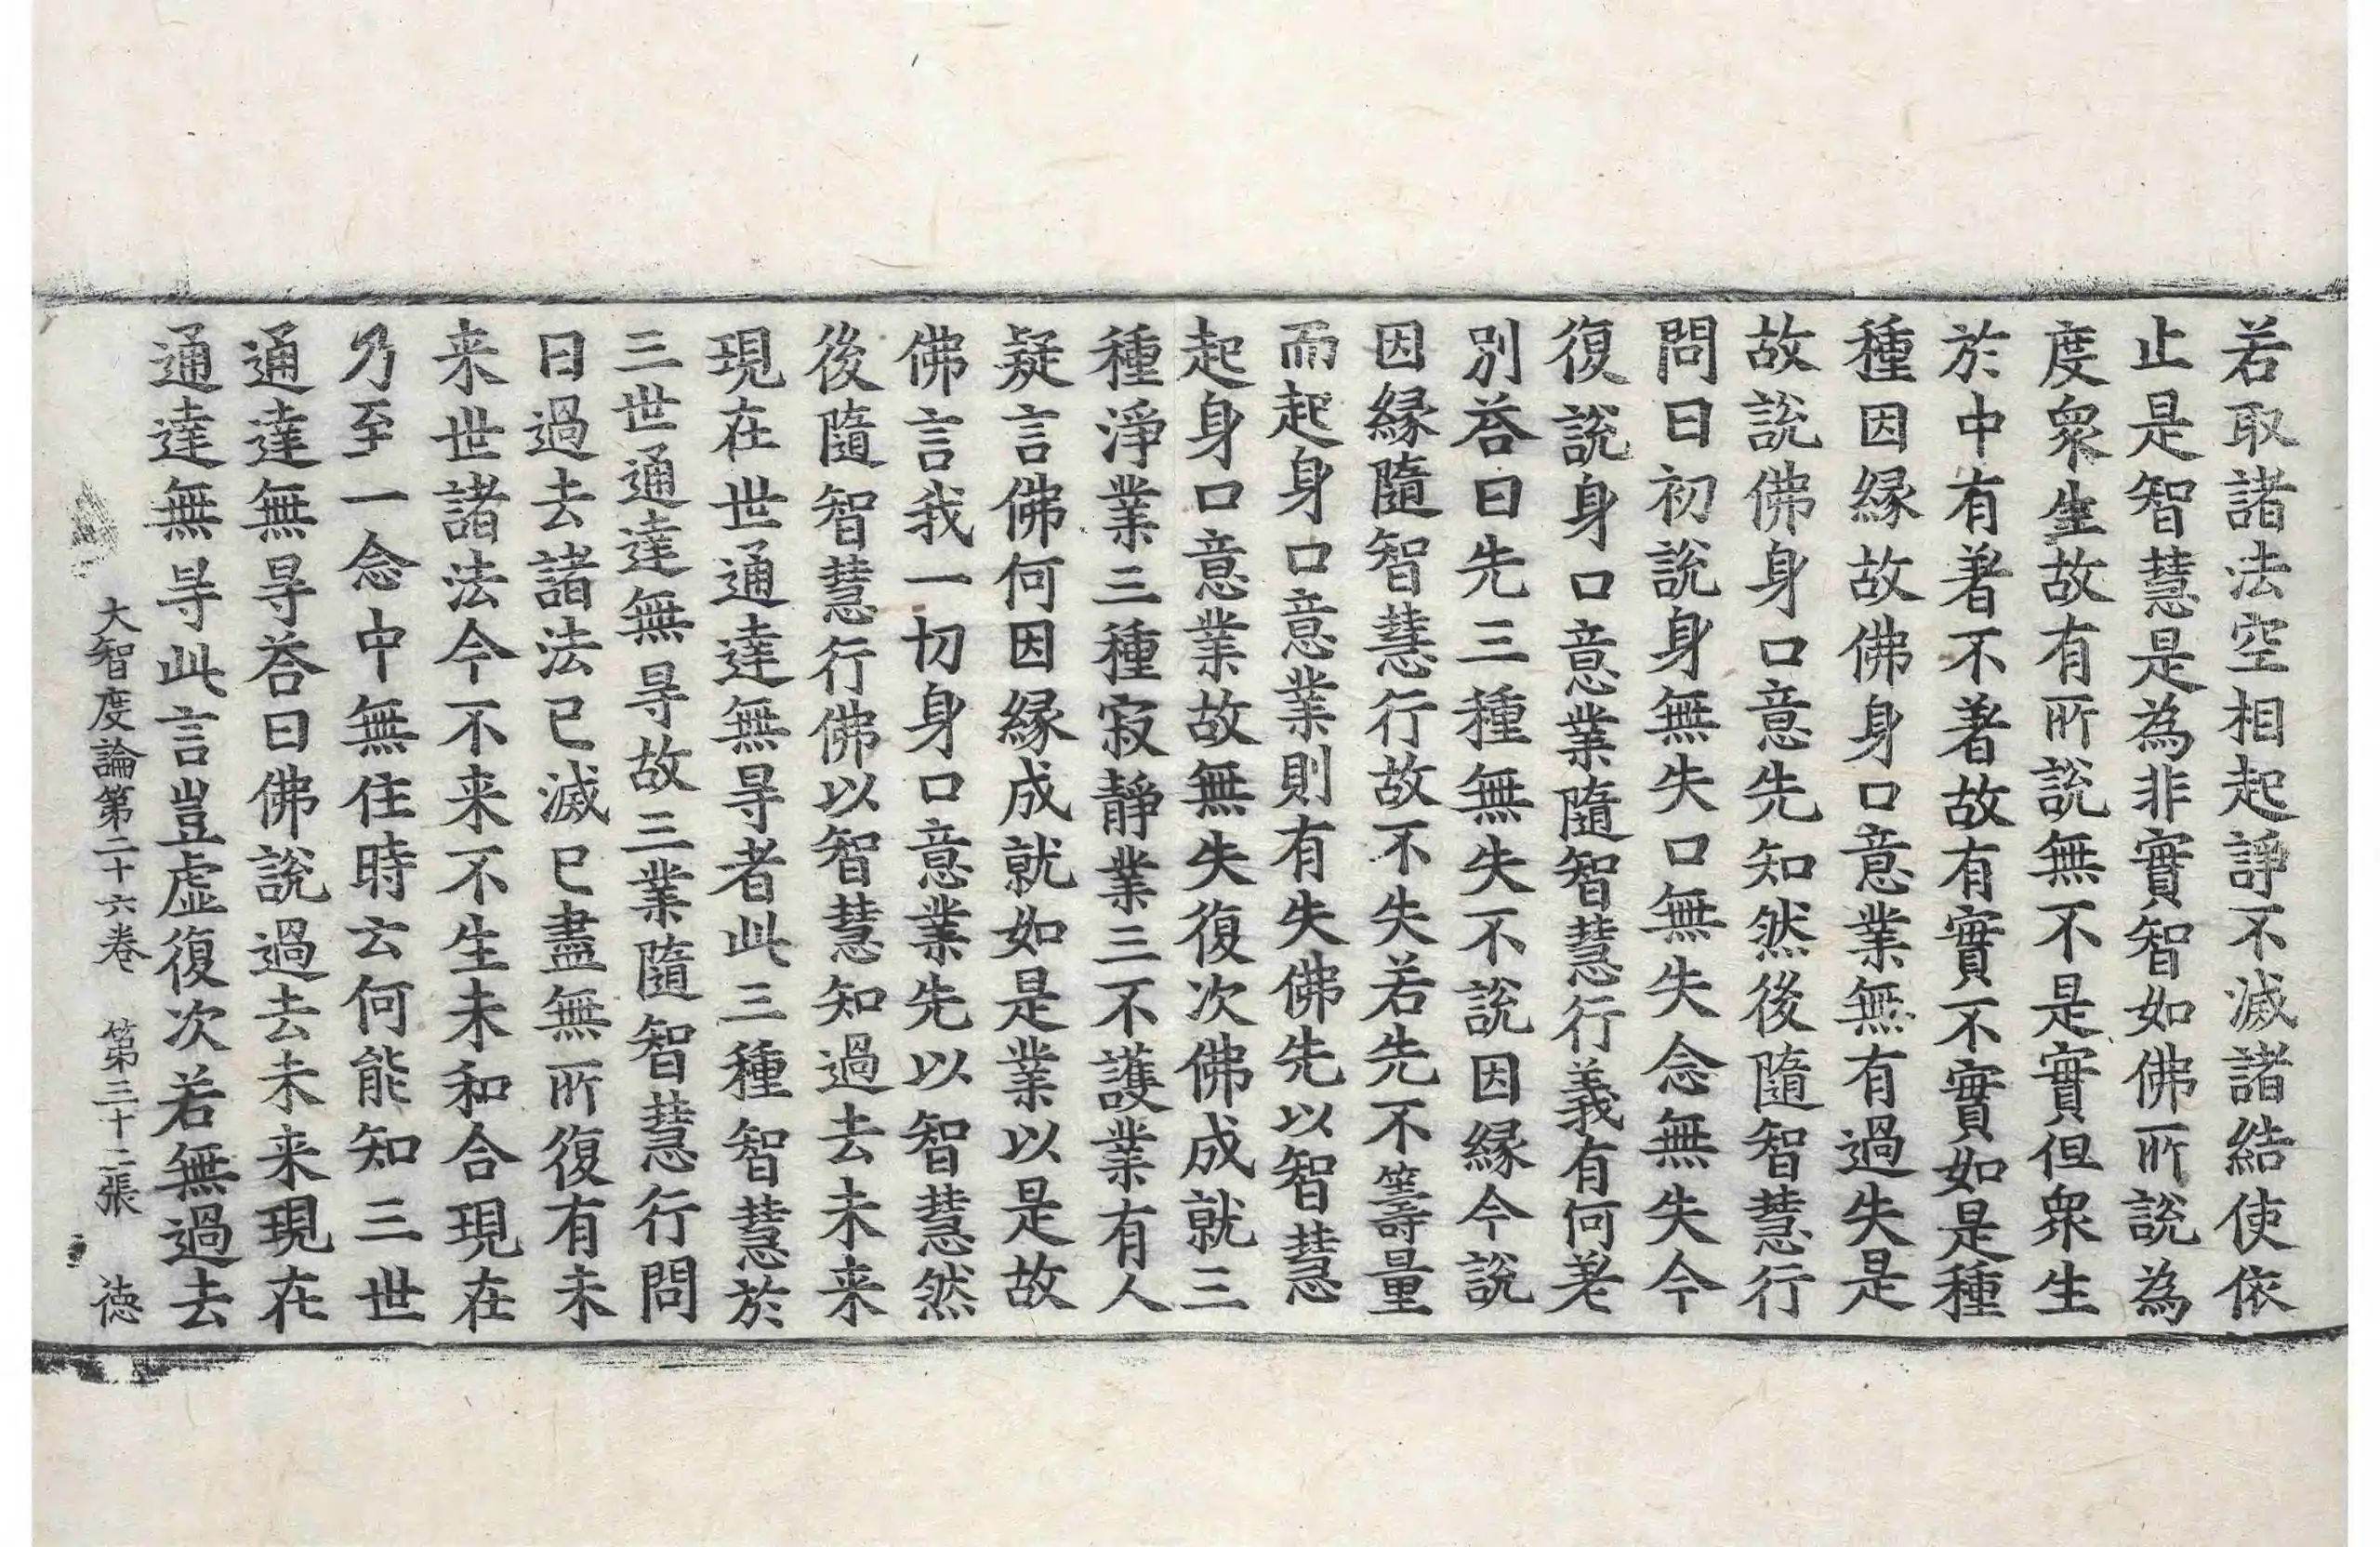 若取諸法空相起諍不滅諸結使依
止是智慧是為非實智如佛所說為
度衆生故有所說無不是實但衆生
於中有著不著故有實不實如是種
種因緣故佛身口意業無有過失是
故說佛身口意先知然後隨智慧行
問曰初說身無失口無失念無失今
復說身口意業隨智慧行義有何差
別荅曰先三種無失不說因緣今說
因緣隨智慧行故不失若先不籌量
而起身口意業則有失佛先以智慧
起身口意業故無失復次佛成就三
種淨業三種寂靜業三不護業有人
疑言佛何因緣成就如是業以是故
佛言我一切身口意業先以智慧然
後隨智慧行佛以智慧知過去未来
現在世通達無㝵者此三種智慧於
三世通達無㝵故三業隨智慧行問
曰過去諸法已滅已盡無所復有未
来世諸法今不来不生未和合現在
乃至一念中無住時云何能知三世
通達無㝵荅曰佛說過去未来現在
通達無㝵此言豈虛復次若無過去
大智度論第二十六卷　第三十二張　徳